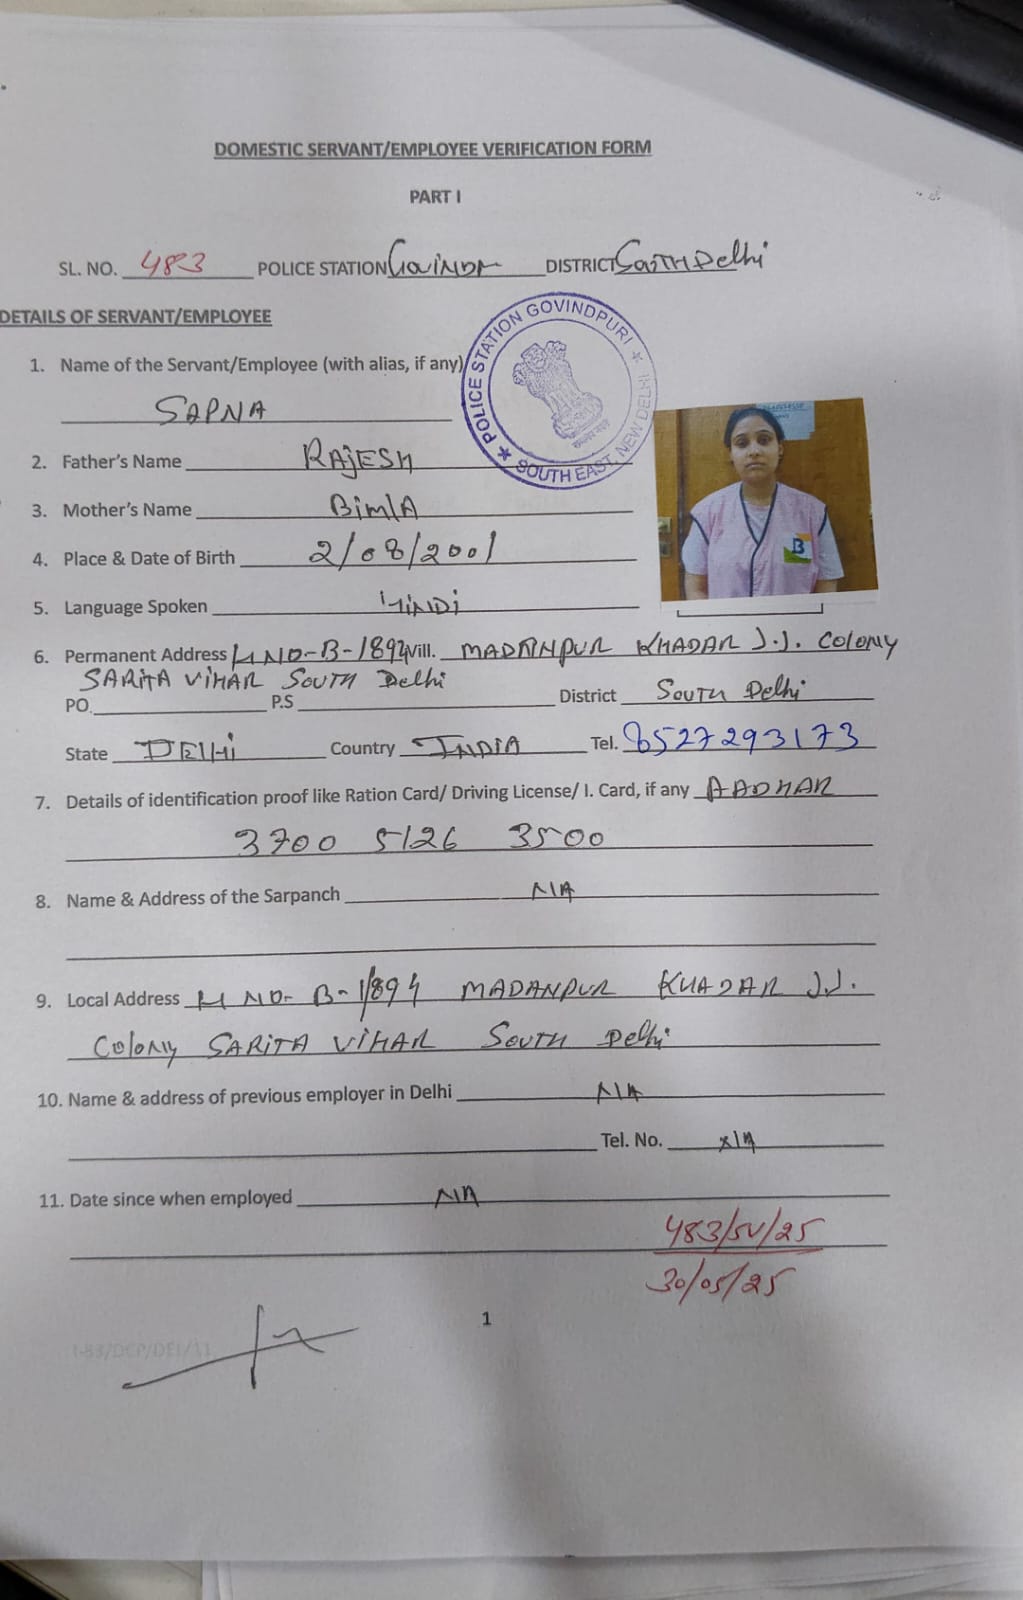 DOMESTIC SERVANT/EMPLOYEE VERIFICATION FORM
PART I
SL. NO. 483 POLICE STATION DISTRICT South Delhi
DETAILS OF SERVANT/EMPLOYEE
★ POLICE STATION GOVINDPURI ★ SOUTH EAST, NEW DELHI
1. Name of the Servant/Employee (with alias, if any)
SAPNA
2. Father's Name RAJESH
3. Mother's Name BimlA
B
4. Place & Date of Birth 2/08/2001
5. Language Spoken HiNDi
6. Permanent Address H NO-B-1894 Vill. MADANPUR KHADAR J.J. COLONY
SARITA VIHAR SOUTH Delhi
PO. P.S District SOUTH Delhi
State DELHi Country INDIA Tel. 8527293173
7. Details of identification proof like Ration Card/ Driving License/ I. Card, if any AADHAR
3700 5126 3500
8. Name & Address of the Sarpanch N/A
9. Local Address H NO- B-1/894 MADANPUR KHADAR J.J.
Colony SARITA VIHAR SOUTH Delhi
10. Name & address of previous employer in Delhi N/A
Tel. No. N/A
11. Date since when employed N/A
483/SV/25
30/05/25
1